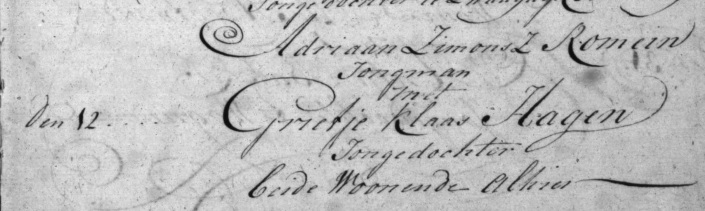 Jongedochter
Adriaan Zimons Z Romein
Jongman
met
den 12 Grietje klaas Hagen
Jongedochter
beide Woonende Alhier